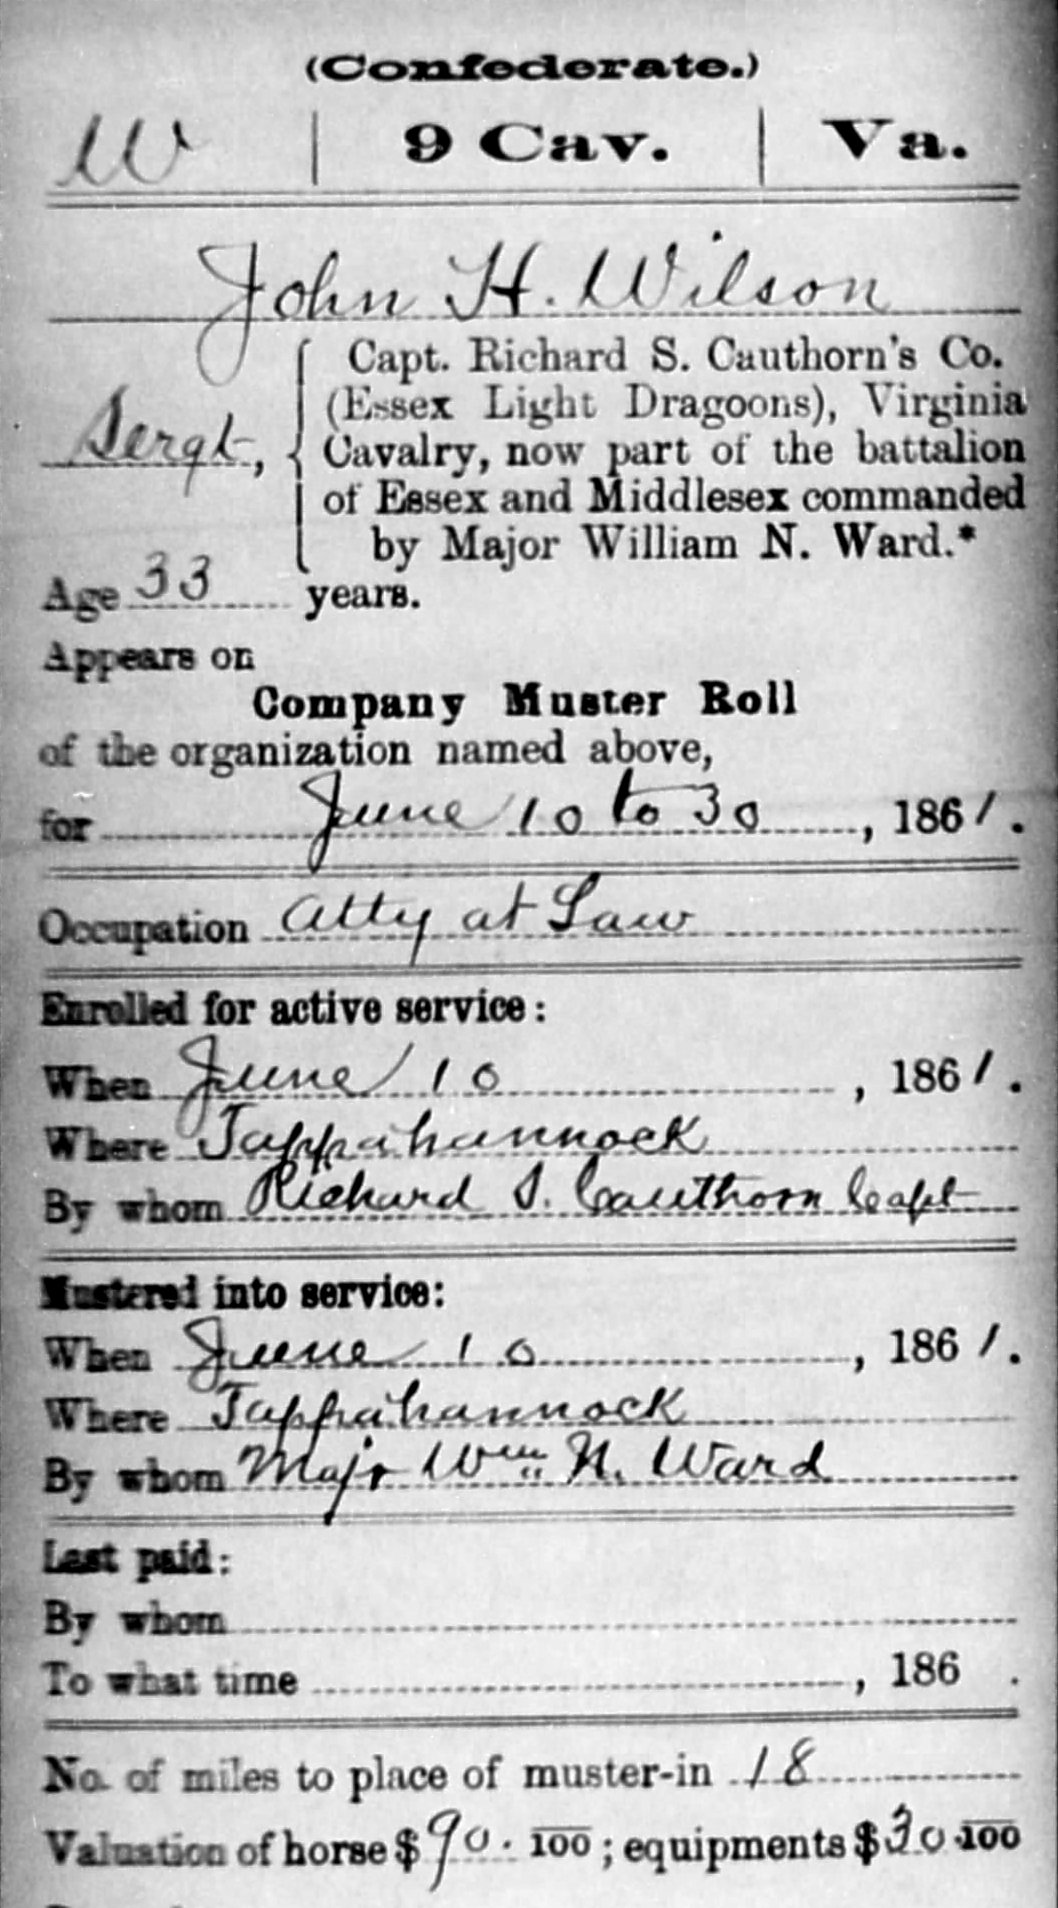 (Confederate.)
W | 9 Cav. | Va.
John H. Wilson
Sergt, { Capt. Richard S. Cauthorn's Co.
(Essex Light Dragoons), Virginia
Cavalry, now part of the battalion
of Essex and Middlesex commanded
by Major William N. Ward.*
Age 33 years.
Appears on
Company Muster Roll
of the organization named above,
for June 10 to 30, 1861.
Occupation Atty at Law
Enrolled for active service:
When June 10, 1861.
Where Tappahannock
By whom Richard S. Cauthorn Capt
Mustered into service:
When June 10, 1861.
Where Tappahannock
By whom Majr Wm N. Ward
Last paid:
By whom
To what time , 186 .
No. of miles to place of muster-in 18
Valuation of horse $90. 100; equipments $30. 100